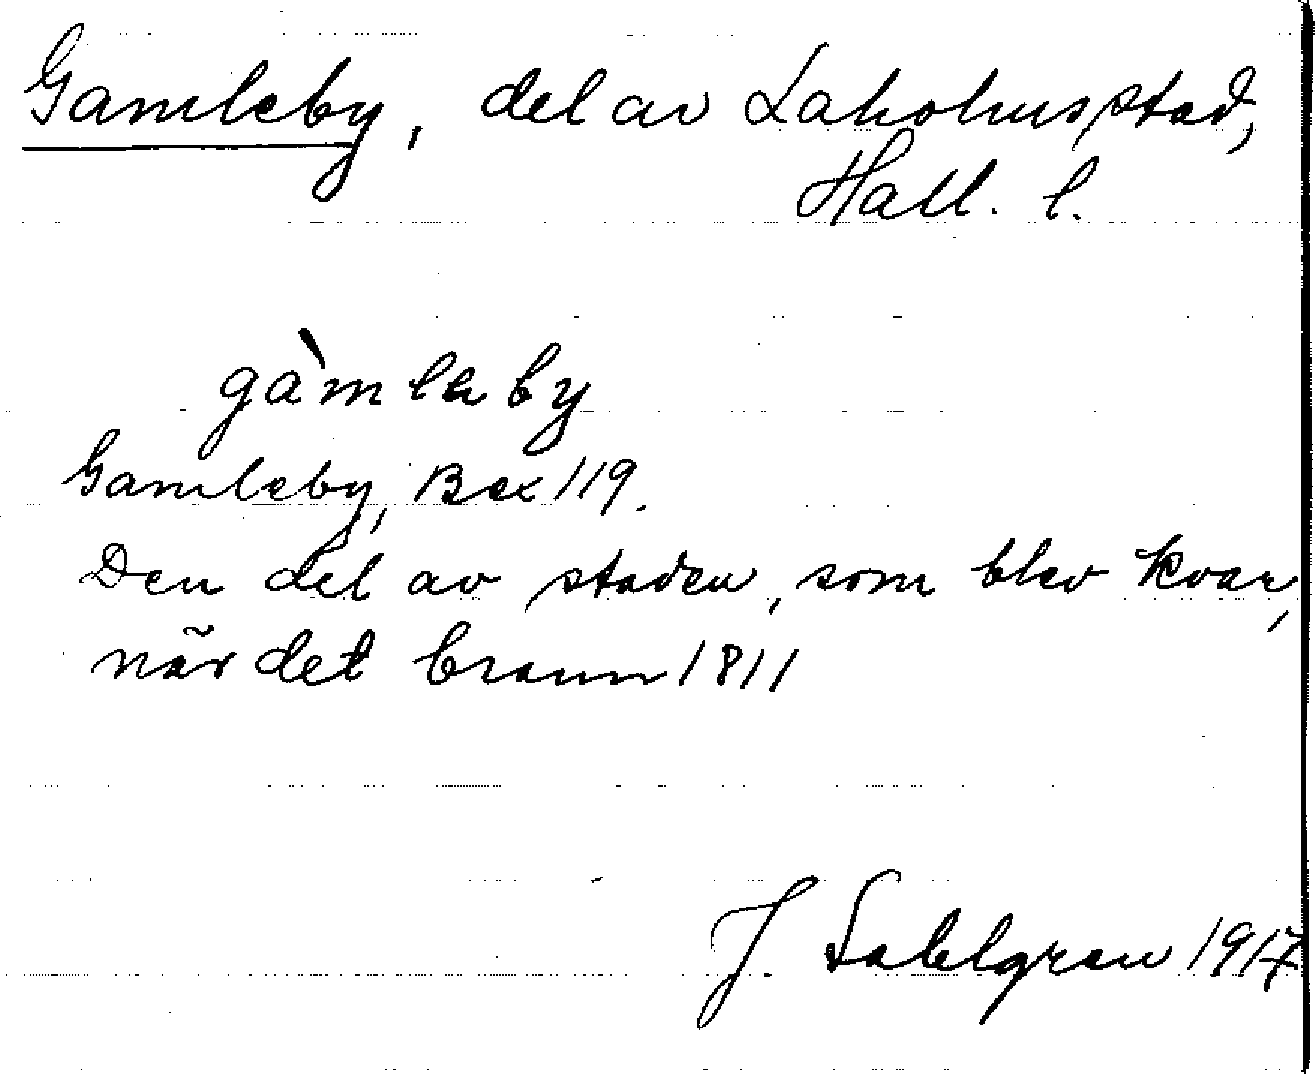 Gamleby, del av Laholms stad,
Hall. l.
gàmlaby
Gamleby, Bex 119.
Den del av staden, som blev kvar,
når det brann 1811
J Sahlgren 1917